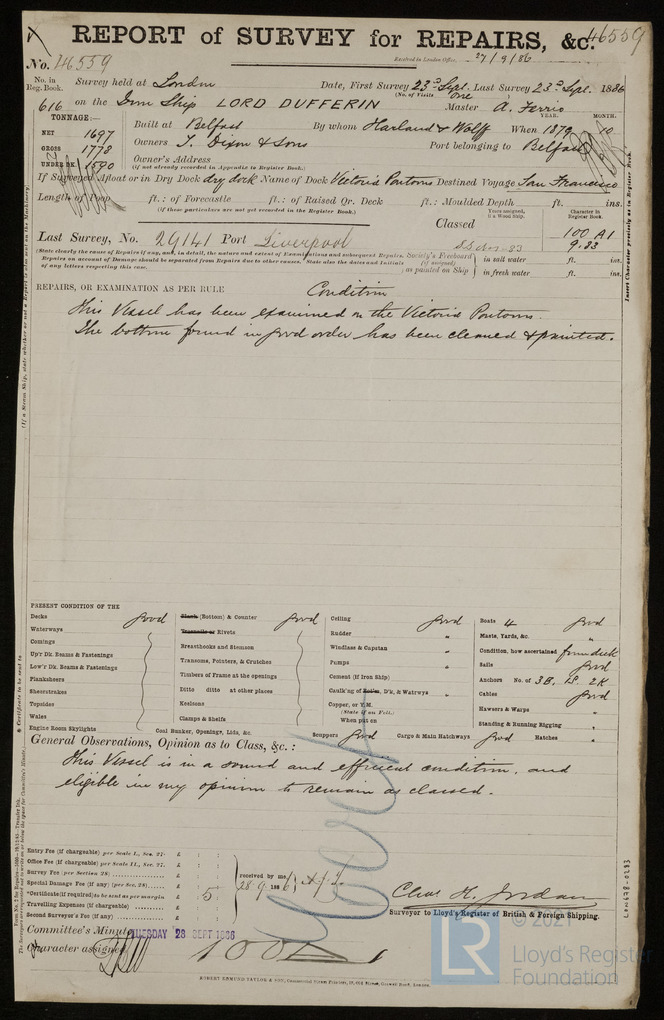 REPORT of SURVEY for REPAIRS, &c. 46559
No. 46559
Received in London Office, 27/9/86
No. in Reg. Book. Survey held at London Date, First Survey 23rd Sept. Last Survey 23rd Sept. 1886
(No. of Visits one)
616 on the Iron Ship LORD DUFFERIN Master A. Ferris
TONNAGE:—
YEAR. MONTH.
NET 1697 Built at Belfast By whom Harland & Wolff When 1879 10
GROSS 1778 Owners T. Dixon & Sons Port belonging to Belfast
UNDER DK. 1590 Owner's Address
(if not already recorded in Appendix to Register Book.)
If Surveyed Afloat or in Dry Dock dry dock Name of Dock Victoria Pontoons Destined Voyage San Francisco
Length of Poop ft.: of Forecastle ft.: of Raised Qr. Deck ft.: Moulded Depth ft. ins.
(if these particulars are not yet recorded in the Register Book.)
Years assigned, if a Wood Ship. Character in Register Book.
Last Survey, No. 29141 Port Liverpool Classed 100 A1
9.83
Society's Freeboard (if assigned) as painted on Ship } in salt water ft. ins.
in fresh water ft. ins.
(State clearly the cause of Repairs if any, and, in detail, the nature and extent of Examinations and subsequent Repairs.
Repairs on account of Damage should be separated from Repairs due to other causes. State also the dates and initials
of any letters respecting this case.
REPAIRS, OR EXAMINATION AS PER RULE Condition
This Vessel has been examined on the Victoria Pontoons.
The bottom found in good order has been cleaned & painted.
PRESENT CONDITION OF THE
Decks good
Waterways
Comings
Up'r Dk. Beams & Fastenings
Low'r Dk. Beams & Fastenings
Planksheers
Sheerstrakes
Topsides
Wales
Engine Room Skylights
Plank (Bottom) & Counter good
Treenails or Rivets
Breasthooks and Stemson
Transoms, Pointers, & Crutches
Timbers of Frame at the openings
Ditto ditto at other places
Keelsons
Clamps & Shelfs
Coal Bunker, Openings, Lids, &c.
Ceiling good
Rudder "
Windlass & Capstan "
Pumps "
Cement (if Iron Ship) "
Caulk'ng of Bot'm, D'k, & Watrwys "
Copper, or Y.M.
(State if on Felt.)
When put on
Scuppers good Cargo & Main Hatchways good Hatches "
Boats 4 good
Masts, Yards, &c. "
Condition, how ascertained from deck
Sails good
Anchors No. of 3B. 1S. 2K
Cables good
Hawsers & Warps "
Standing & Running Rigging "
General Observations, Opinion as to Class, &c.:
This Vessel is in a sound and efficient condition, and
eligible in my opinion to remain as classed.
Entry Fee (if chargeable) per Scale I., Sec. 27. £ : :
Office Fee (if chargeable) per Scale II., Sec. 27. £ : :
Survey Fee (per Section 28) £ : :
Special Damage Fee (if any) (per Sec. 28) £ : :
*Certificate (if required) to be sent as per margin £ : 5 :
Travelling Expenses (if chargeable) £ : :
Second Surveyor's Fee (if any) £ : :
received by me,
28.9.1886
Chas. H. Jordan
Surveyor to Lloyd's Register of British & Foreign Shipping.
Committee's Minute TUESDAY 28 SEPT 1886
Character assigned 100 A 1
© 2021
LR
Lloyd's Register
Foundation
LON678-0283